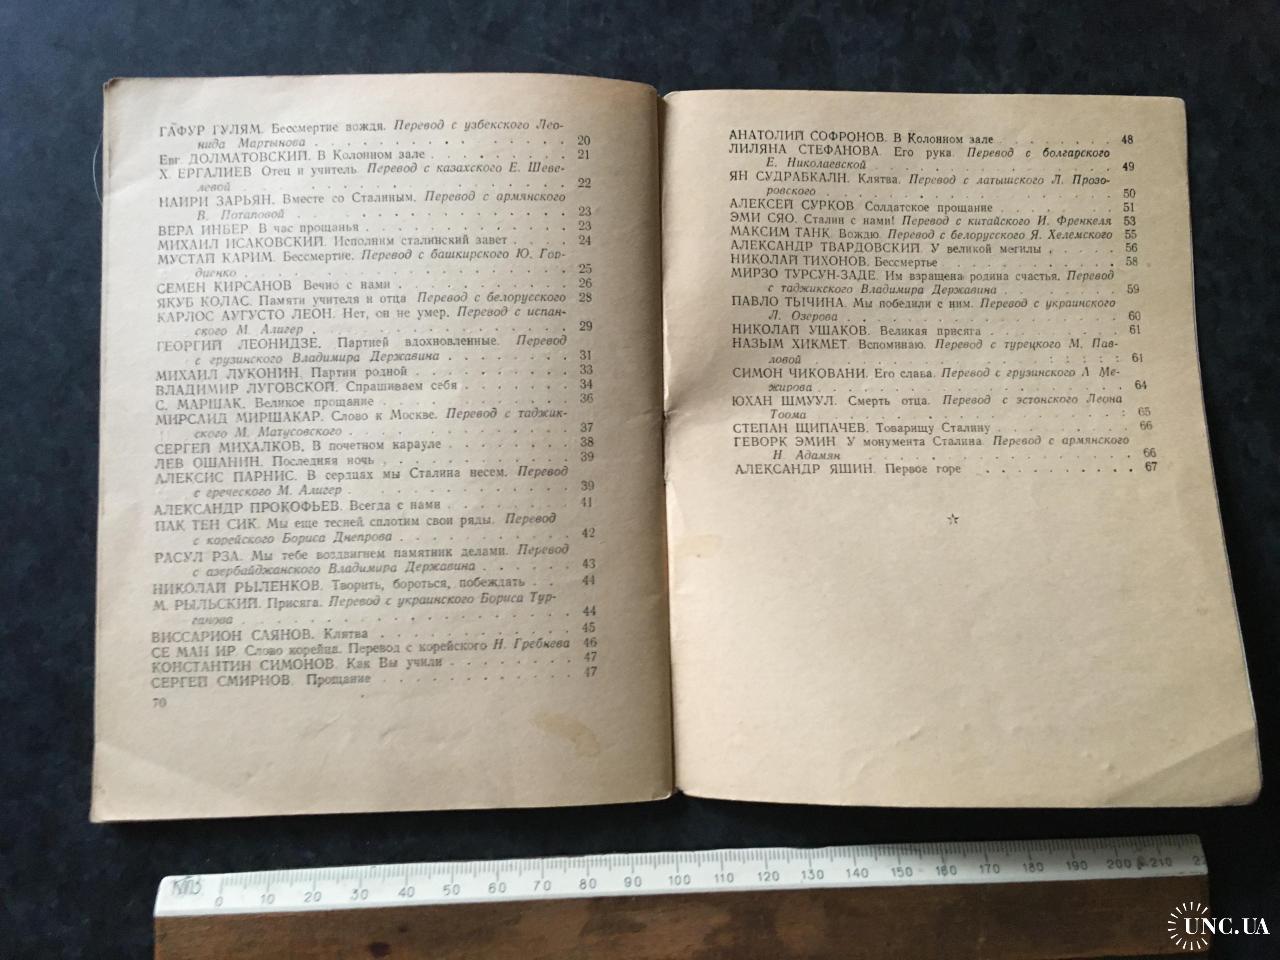 ГАФУР ГУЛЯМ. Бессмертие вождя. Перевод с узбекского Лео-
нида Мартынова . . . . . . . . . . 20
Евг. ДОЛМАТОВСКИЙ. В Колонном зале . . . . . . . 21
Х. ЕРГАЛИЕВ Отец и учитель. Перевод с казахского Е. Шеве-
левой . . . . . . . . . . . . . 22
НАИРИ ЗАРЬЯН. Вместе со Сталиным. Перевод с армянского
В. Потаповой . . . . . . . . . . . 23
ВЕРА ИНБЕР В час прощанья . . . . . . . . . 23
МИХАИЛ ИСАКОВСКИЙ. Исполним сталинский завет . . . . 24
МУСТАЙ КАРИМ. Бессмертие. Перевод с башкирского Ю. Гор-
диенко . . . . . . . . . . . . . 25
СЕМЕН КИРСАНОВ Вечно с нами . . . . . . . . 26
ЯКУБ КОЛАС. Памяти учителя и отца Перевод с белорусского 28
КАРЛОС АУГУСТО ЛЕОН. Нет, он не умер. Перевод с испан-
ского М. Алигер . . . . . . . . . . 29
ГЕОРГИЙ ЛЕОНИДЗЕ. Партией вдохновленные. Перевод
с грузинского Владимира Державина . . . . . . 31
МИХАИЛ ЛУКОНИН. Партии родной . . . . . . . . 33
ВЛАДИМИР ЛУГОВСКОЙ. Спрашиваем себя . . . . . . 34
С. МАРШАК. Великое прощание . . . . . . . . . 36
МИРСАИД МИРШАКАР. Слово к Москве. Перевод с таджик-
ского М. Матусовского . . . . . . . . . 37
СЕРГЕЙ МИХАЛКОВ. В почетном карауле . . . . . . 38
ЛЕВ ОШАНИН. Последняя ночь . . . . . . . . . 39
АЛЕКСИС ПАРНИС. В сердцах мы Сталина несем. Перевод
с греческого М. Алигер . . . . . . . . . 39
АЛЕКСАНДР ПРОКОФЬЕВ. Всегда с нами . . . . . . 41
ПАК ТЕН СИК. Мы еще тесней сплотим свои ряды. Перевод
с корейского Бориса Днепрова . . . . . . . 42
РАСУЛ РЗА. Мы тебе воздвигнем памятник делами. Перевод
с азербайджанского Владимира Державина . . . . . 43
НИКОЛАЙ РЫЛЕНКОВ. Творить, бороться, побеждать . . . 44
М. РЫЛЬСКИЙ. Присяга. Перевод с украинского Бориса Тур-
ганова . . . . . . . . . . . . . 44
ВИССАРИОН САЯНОВ. Клятва . . . . . . . . . 45
СЕ МАН ИР. Слово корейца. Перевод с корейского Н. Гребнева 46
КОНСТАНТИН СИМОНОВ. Как Вы учили . . . . . . . 47
СЕРГЕЙ СМИРНОВ. Прощание . . . . . . . . . 47
70
АНАТОЛИЙ СОФРОНОВ. В Колонном зале . . . . . . . 48
ЛИЛЯНА СТЕФАНОВА. Его рука. Перевод с болгарского
Е. Николаевской . . . . . . . . . . 49
ЯН СУДРАБКАЛН. Клятва. Перевод с латышского Л. Прозо-
ровского . . . . . . . . . . . . 50
АЛЕКСЕЙ СУРКОВ. Солдатское прощание . . . . . . 51
ЭМИ СЯО. Сталин с нами! Перевод с китайского И. Френкеля 53
МАКСИМ ТАНК. Вождю. Перевод с белорусского Я. Хелемского 55
АЛЕКСАНДР ТВАРДОВСКИЙ. У великой могилы . . . . . 56
НИКОЛАЙ ТИХОНОВ. Бессмертье . . . . . . . . . 58
МИРЗО ТУРСУН-ЗАДЕ. Им взращена родина счастья. Перевод
с таджикского Владимира Державина . . . . . . 59
ПАВЛО ТЫЧИНА. Мы победили с ним. Перевод с украинского
Л. Озерова . . . . . . . . . . . . 60
НИКОЛАЙ УШАКОВ. Великая присяга . . . . . . . 61
НАЗЫМ ХИКМЕТ. Вспоминаю. Перевод с турецкого М. Пав-
ловой . . . . . . . . . . . . . 61
СИМОН ЧИКОВАНИ. Его слава. Перевод с грузинского А Ме-
жирова . . . . . . . . . . . . . 64
ЮХАН ШМУУЛ. Смерть отца. Перевод с эстонского Леона
Тоома . . . . . . . . . . . . . 65
СТЕПАН ЩИПАЧЕВ. Товарищу Сталину . . . . . . . 66
ГЕВОРК ЭМИН У монумента Сталина. Перевод с армянского
Н. Адамян . . . . . . . . . . . . 66
АЛЕКСАНДР ЯШИН. Первое горе . . . . . . . . . 67
0 10 20 30 40 50 60 70 80 90 100 110 120 130 140 150 160 170 180 190 200 210
UNC.UA